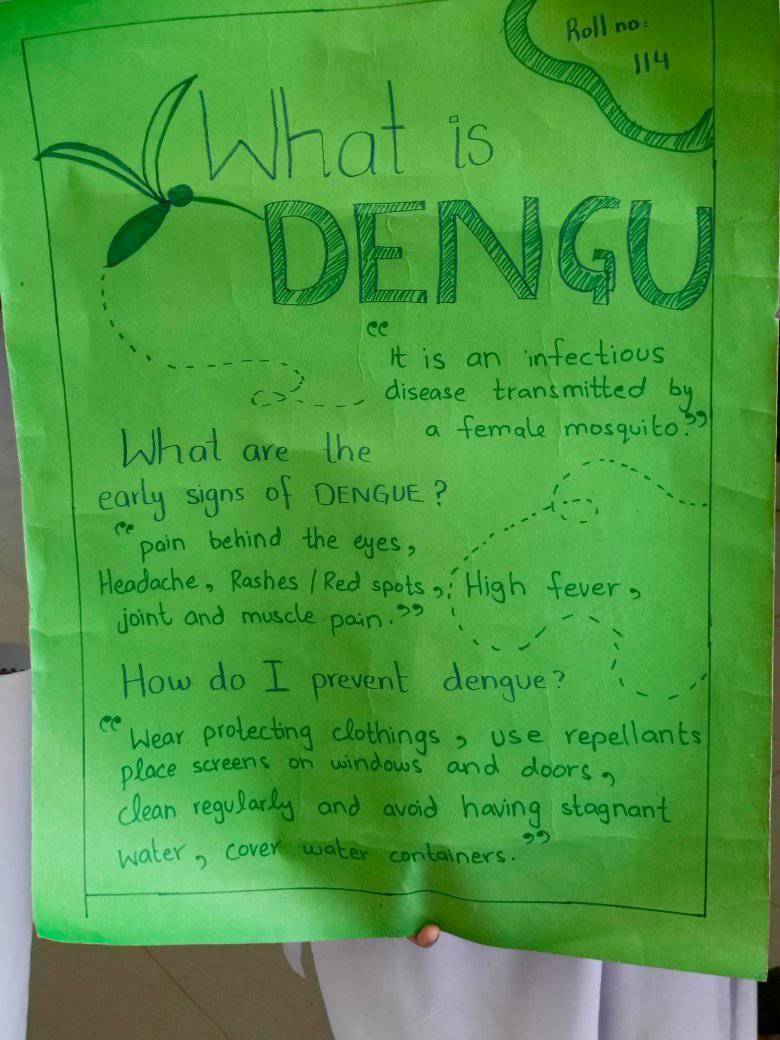 Roll no:
114
What is
DENGU
"It is an infectious
disease transmitted by
a female mosquito."
What are the
early signs of DENGUE?
"pain behind the eyes,
Headache, Rashes / Red spots, High fever,
joint and muscle pain."
How do I prevent dengue?
"Wear protecting clothings, use repellants
place screens on windows and doors,
clean regularly and avoid having stagnant
water, cover water containers."